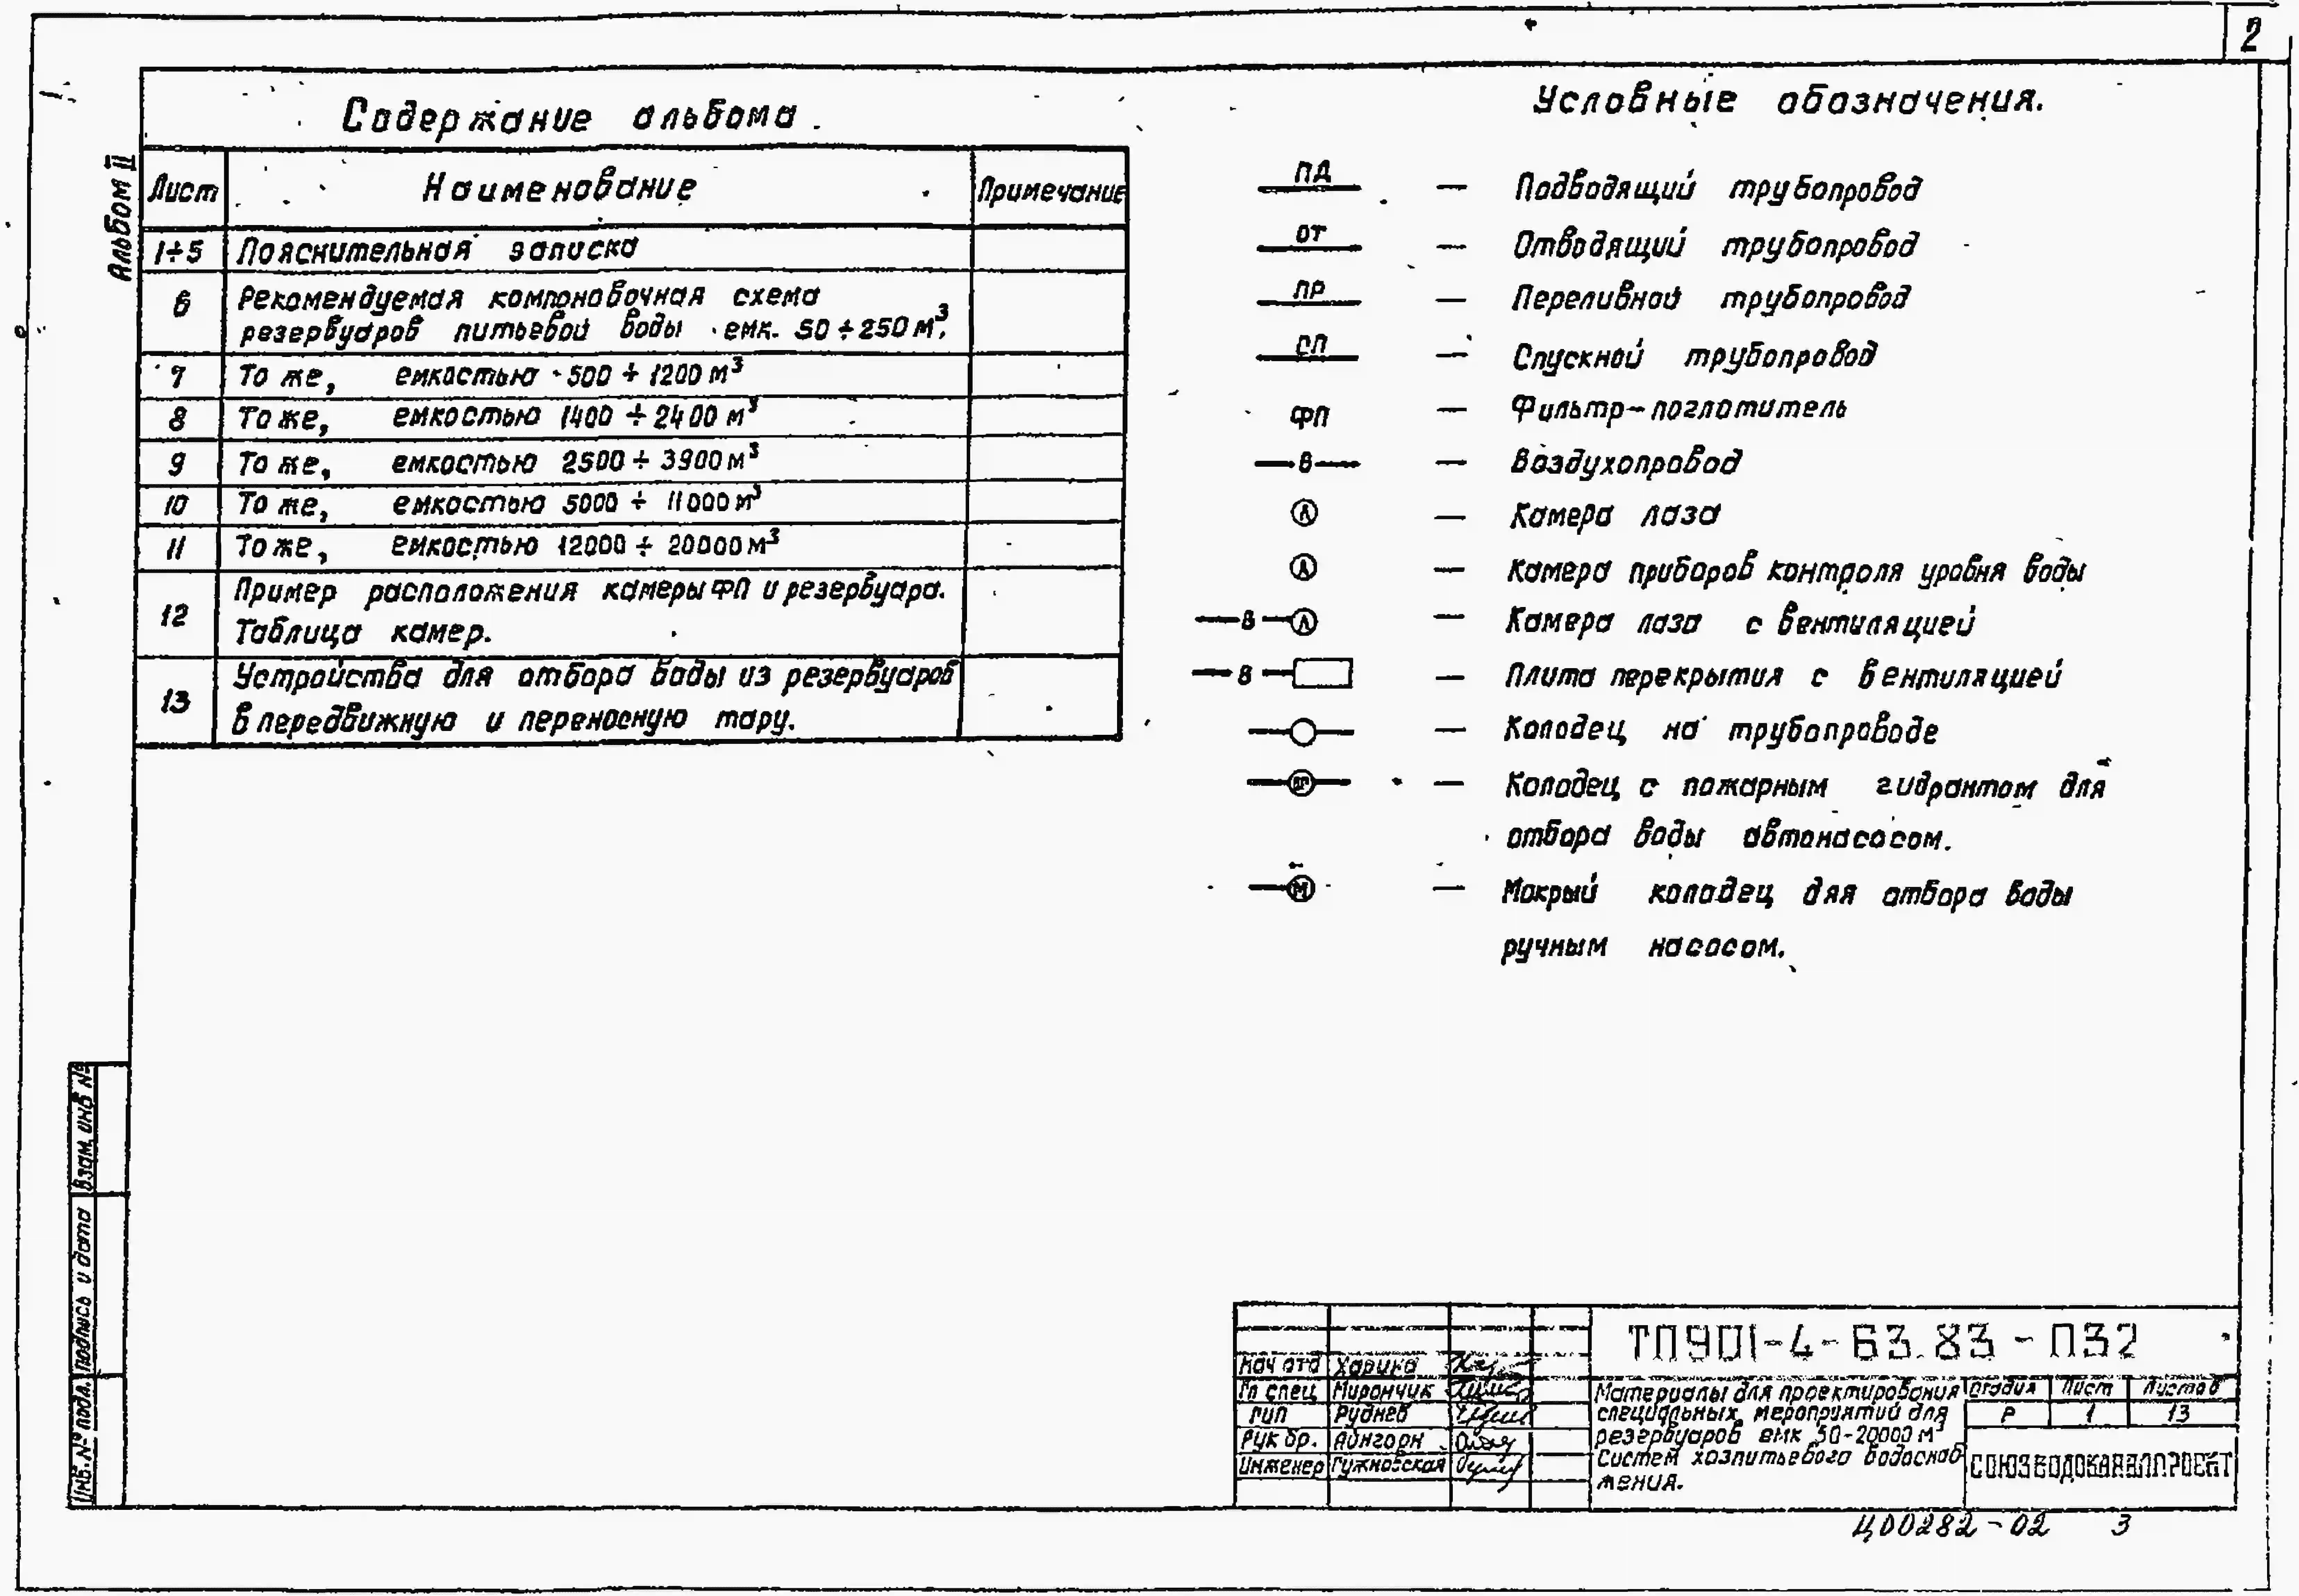 2
Альбом II
Содержание альбома.
Лист Наименование Примечание
1÷5 Пояснительная записка
6 Рекомендуемая компоновочная схема
резервуаров питьевой воды емк. 50÷250 м³.
7 То же, емкостью 500 ÷ 1200 м³
8 То же, емкостью 1400 ÷ 2400 м³
9 То же, емкостью 2500 ÷ 3900 м³
10 То же, емкостью 5000 ÷ 11000 м³
11 То же, емкостью 12000 ÷ 20000 м³
12 Пример расположения камеры ФП и резервуара.
Таблица камер.
13 Устройства для отбора воды из резервуаров
в передвижную и переносную тару.
Условные обозначения.
ПД — Подводящий трубопровод
ОТ — Отводящий трубопровод
ПР — Переливной трубопровод
СП — Спускной трубопровод
ФП — Фильтр-поглотитель
В — Воздухопровод
Л — Камера лаза
— Камера приборов контроля уровня воды
В Л — Камера лаза с вентиляцией
В — Плита перекрытия с вентиляцией
— Колодец на трубопроводе
ПГ — Колодец с пожарным гидрантом для
отбора воды автонасосом.
М — Мокрый колодец для отбора воды
ручным насосом.
Взам. инв №
Подпись и дата
Инв. № подл.
ТП901-4-63.83-ПЗ2
Нач отд Харина
Гл спец Мирончик
ГИП Руднев
Рук бр. Айнгорн
Инженер Гужновская
Материалы для проектирования
специальных мероприятий для
резервуаров емк 50-20000 м³
Систем хозпитьевого водоснаб
жения.
Стадия Лист Листов
Р 1 13
СОЮЗВОДОКАНАЛПРОЕКТ
Ц00282-02 3